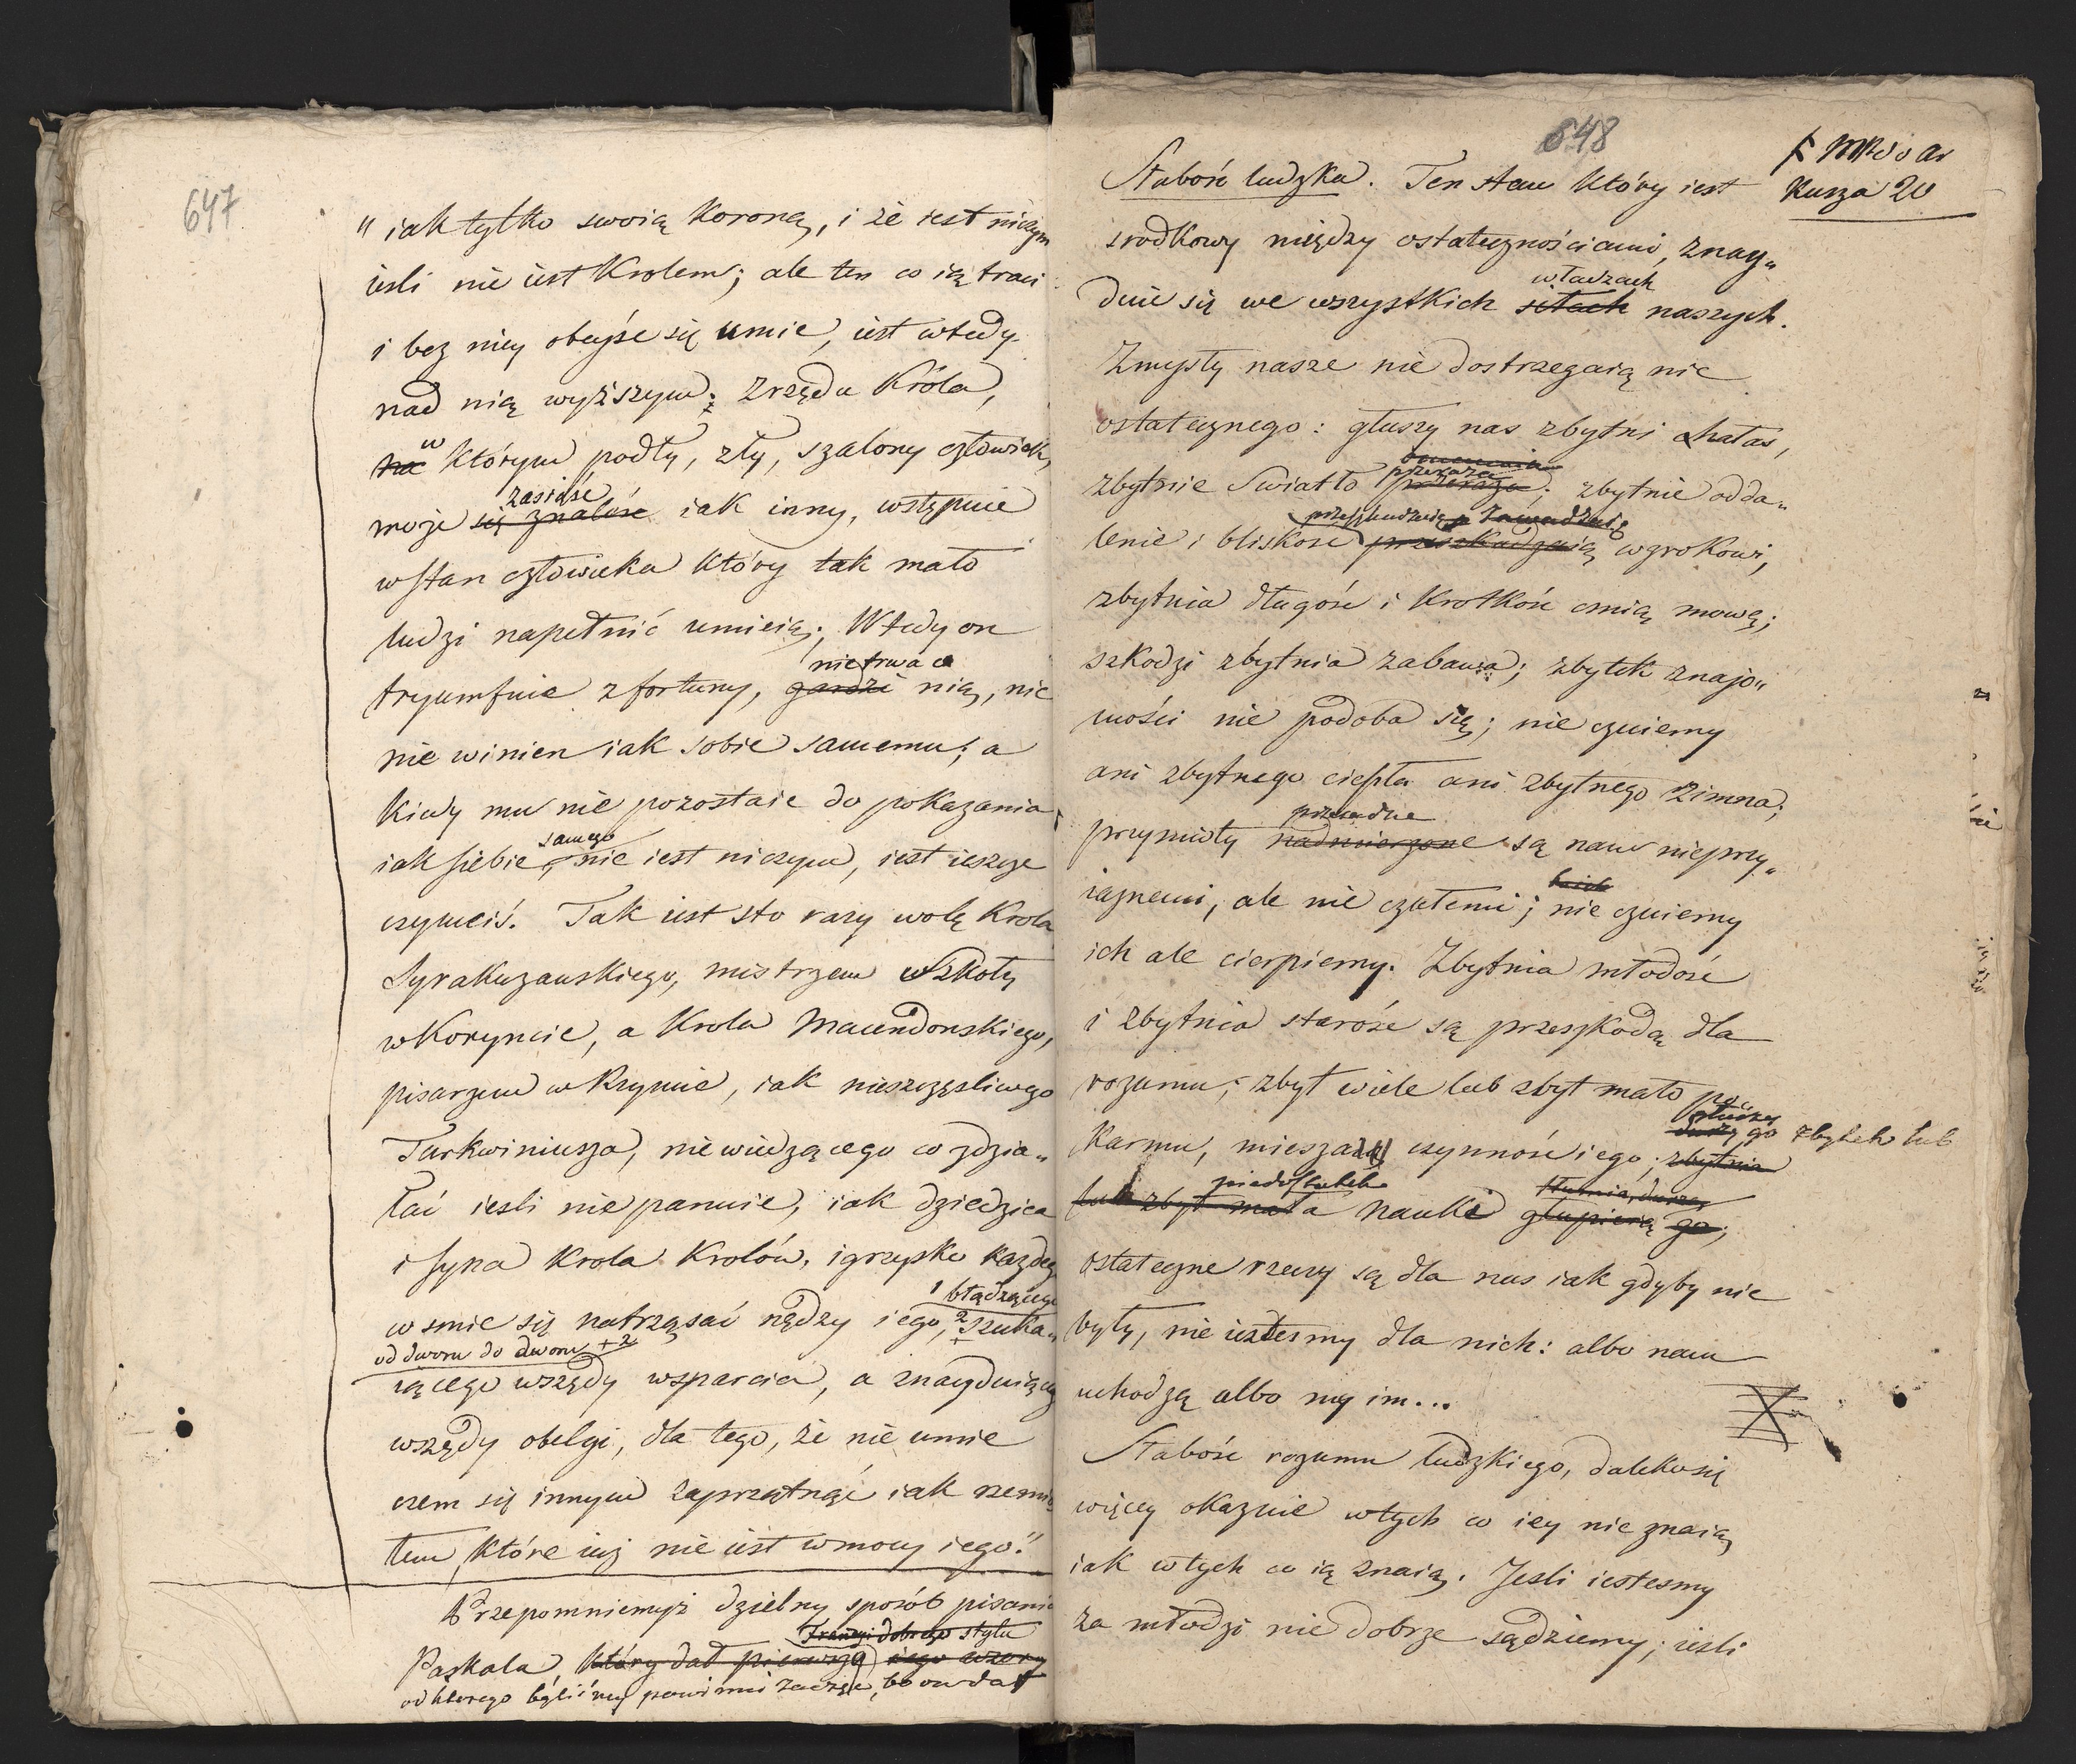 647
" iak tylko swoią koroną, i że iest niczym
iesli nie iest Krolem; ale ten co ią traci
i bez niey obeyśc się umie, iest wtedy
nad nią wyższym; Zrzęda Króla,
w
na którym podły, zły, szalony człowiek,
zasiaśc
może się znalośc iak inny, wstępuie
w stan człowieka który tak mało
ludzi napełnić umieią; Wtedy on
nie trwa o
tryumfuie z fortuny, gardzi nią, nic
nie winien iak sobie samemu; a
kiedy mu nie pozostaie do pokazania
samego
iak siebie, nie iest niczym, iest ieszcze
czymciś. Tak iest sto razy wolę Krola
Syrakuzanskiego, mistrzem Szkoły
w Koryncie, a Krola Macendonskiego,
pisarzem w Rzymie, iak nieszczęsliwego
Tarkwiniusza, niewiedzącego co zdzia„
łać iesli nie panuie, iak dziedzica
i syna Krola Krolów, igrzysko każdeg
1 błądzącego
w smie się natrząsać nędzy iego, 2 szuka„
od dworu do dworu + 2
iącego wszędy wsparcia, a znayduiącego
wszędy obelgi, dla tego, że nie umie
czem się innym zaprzątnąć iak rzemio
łem, które iuż nie iest w mocy iego."
Przepomniemyż dzielny sposób pisania
Francyi dobrego stylu
Paskala, który dał pierwszy iego wzory
od ktorego byliśmy powinni zacząc, bo on dał
648
Słabość ludzka. Ten stan który iest
Kusza 20
srodkowy między ostatecznościami, znay„
władzach
duie się we wszystkich siłach naszych.
Zmysły nasze nie dostrzegaią nic
ostatecznego: głuszy nas zbytni hałas,
przeraża
zbytnie Swiatło przeraża; zbytnie odda„
przeszkadzaią
lenie i bliskosc przeszkadzaią wzrokowi,
zbytnia długośc i krotkośc cmią mowę;
szkodzi zbytnia zabawa; zbytek znajo„
mości nie podoba się; nie czuiemy
ani zbytnego ciepła ani zbytnego zimna;
przesadne
przymioty nadmierzone są nam nieprzy„
iaznemi, ale nie czułemi; nie czuiemy
ich ale cierpiemy. Zbytnia młodośc
i zbytnia starośc są przeszkodą dla
rozumu; zbyt wiele lub zbyt mało po„
głuszy
durzy go zbytek lub
karmu, miesza czynnośc iego; zbytnia
niedostatek
lub zbyt mała nauki głupieią go;
ostateczne rzeczy są dla nas iak gdyby nie
były, nie iestesmy dla nich: albo nam
uchodzą albo my im...
Słabośc rozumu ludzkiego, daleko się
więcey okazuie w tych co iey nie znaią
iak w tych co ią znaią. Jesli iestesmy
za młodzi nie dobrze sądziemy; iesli